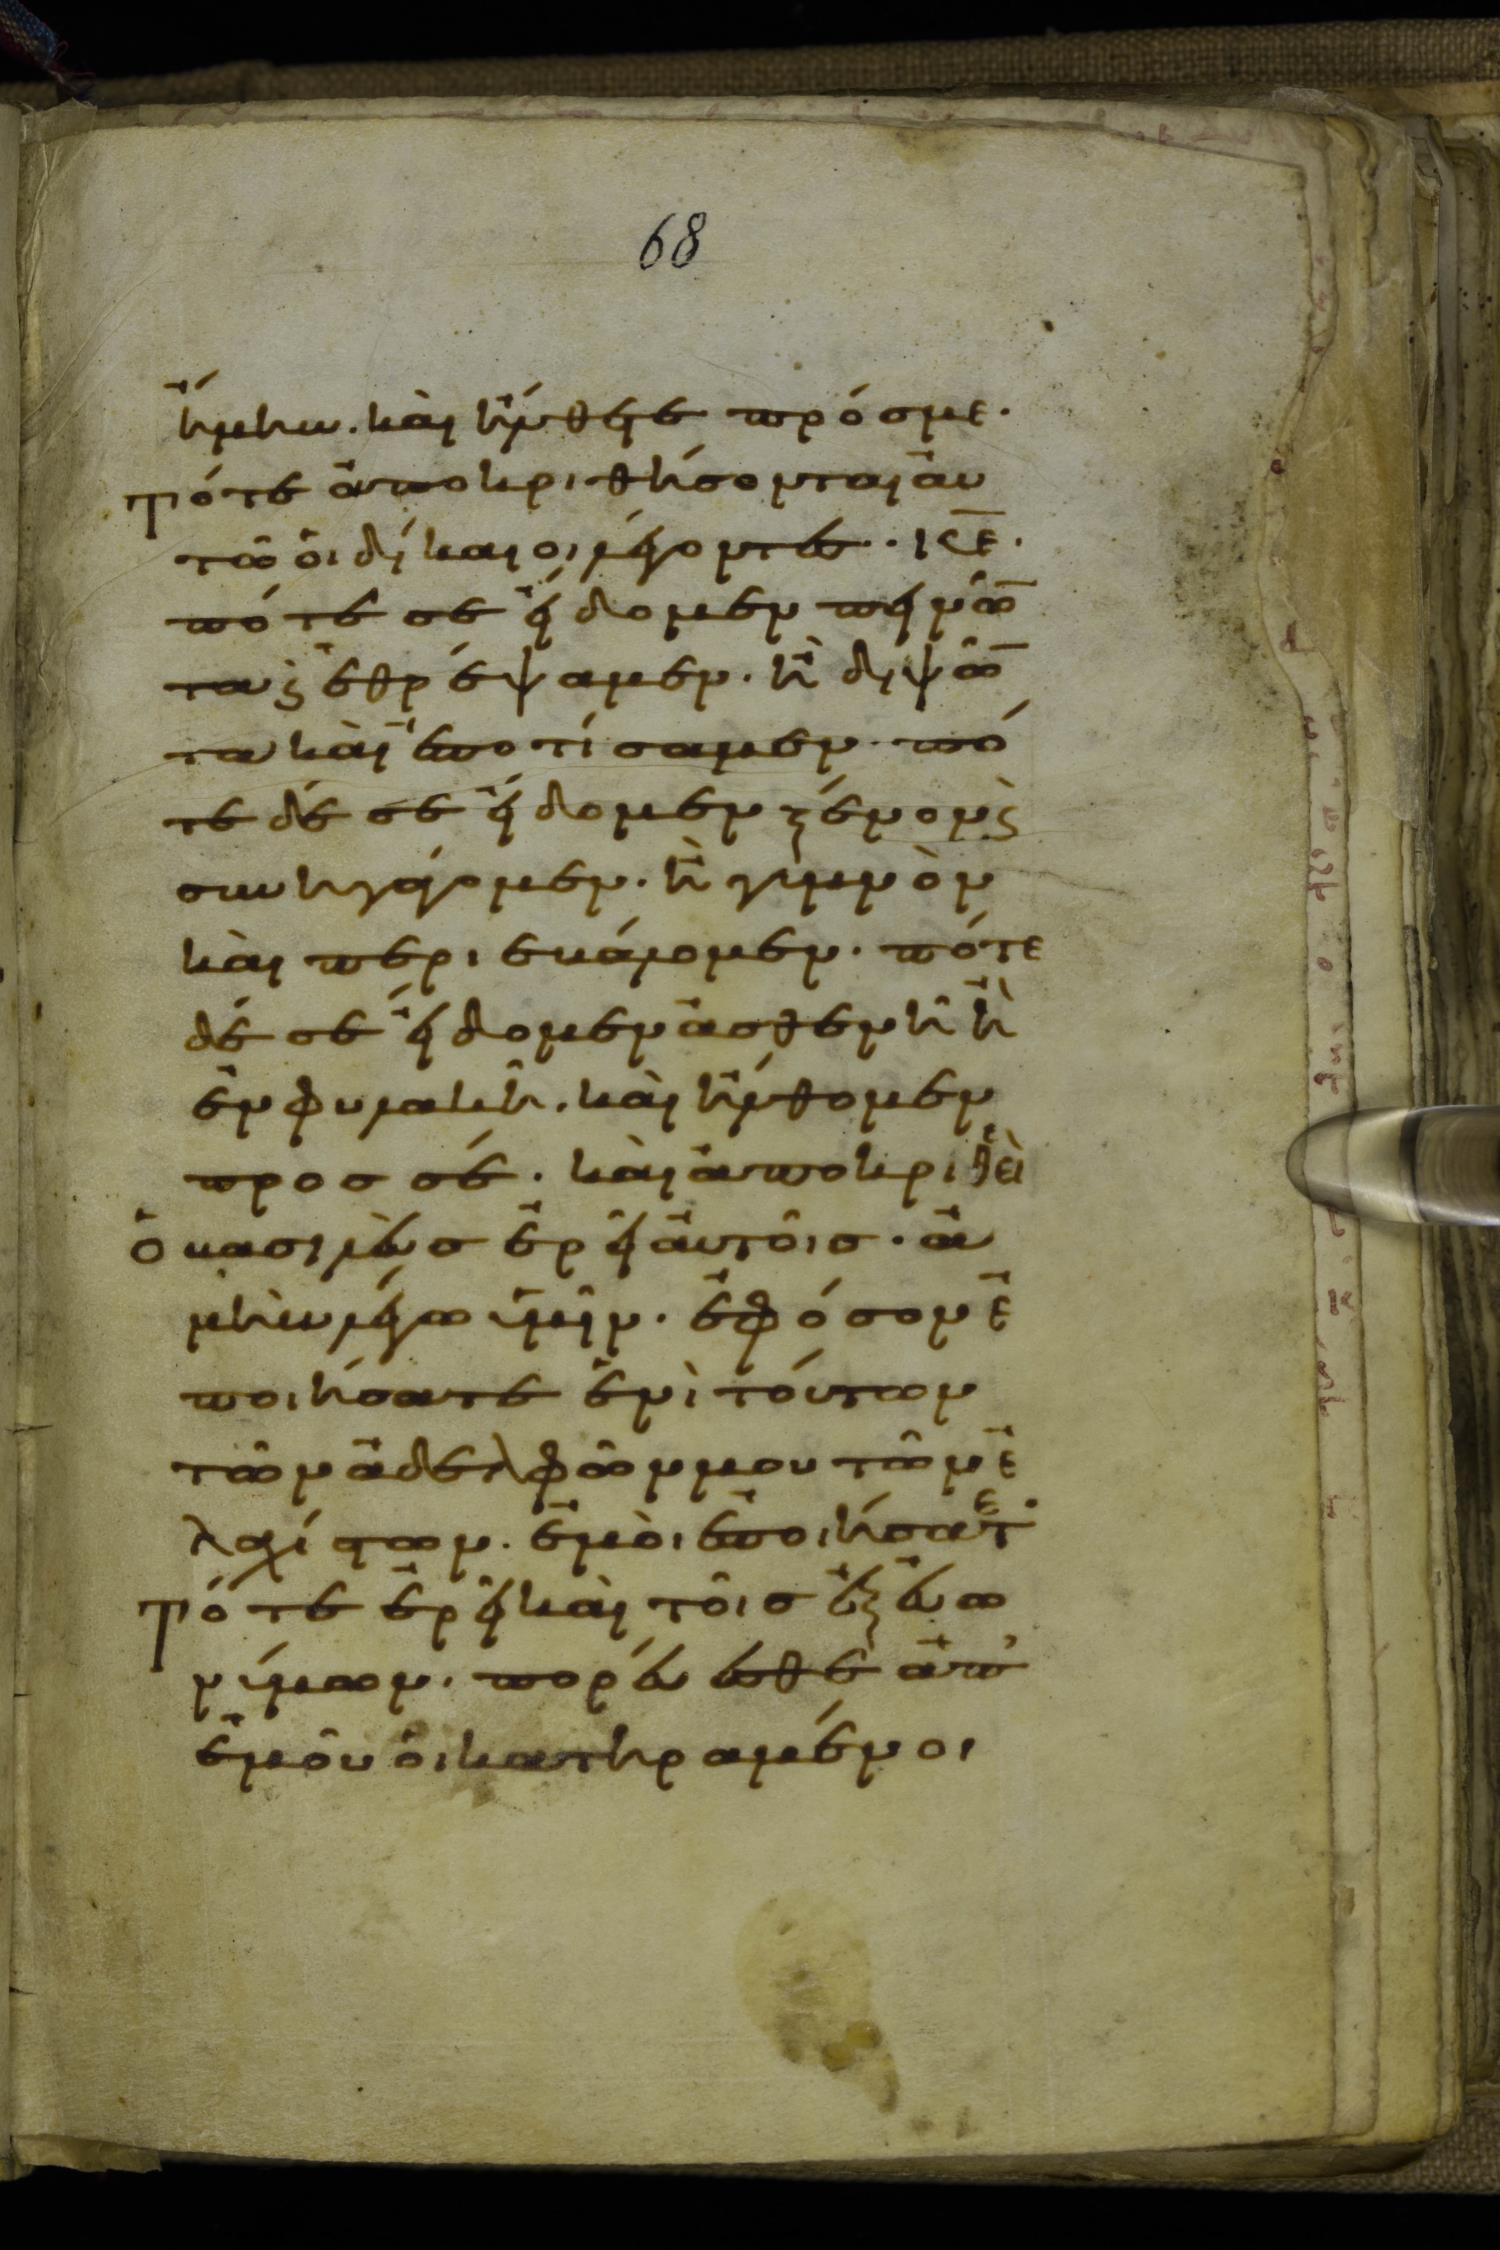 68
ἤμην. καὶ ἤλθετε πρός με.
Τότε ἀποκριθήσονται αὐ
τῶ οἱ δίκαιοι λέγοντες· κε̅.
πότε σε εἴδομεν πεινῶ̅
τα ς ἐθρέψαμεν. ἢ διψῶ̅
τα καὶ ἐποτίσαμεν· πό
τε δέ σε εἴδομεν ξένον ς
συνηγάγομεν. ἢ γυμνὸν
καὶ περιεβάλομεν. πότε
δέ σε εἴδομεν ἀσθενῆ ἢ
ἐν φυλακῆ. καὶ ἤλθομεν
προς σέ. καὶ ἀποκριθεὶ
ὁ βασιλεὺς ἐρεῖ αὐτοῖς. ἀ
μὴν λέγω ὑμῖν. ἐφόσον ἐ
ποιήσατε ἐνὶ τούτων
τῶν ἀδελφῶν μου τῶν ἐ
λαχίστων. ἐμοὶ ἐποιήσατε.
Τότε ἐρεῖ καὶ τοῖς ἐξ εὐω
νύμων. πορεύεσθε ἀπ'
ἐμοῦ οἱ κατηραμένοι